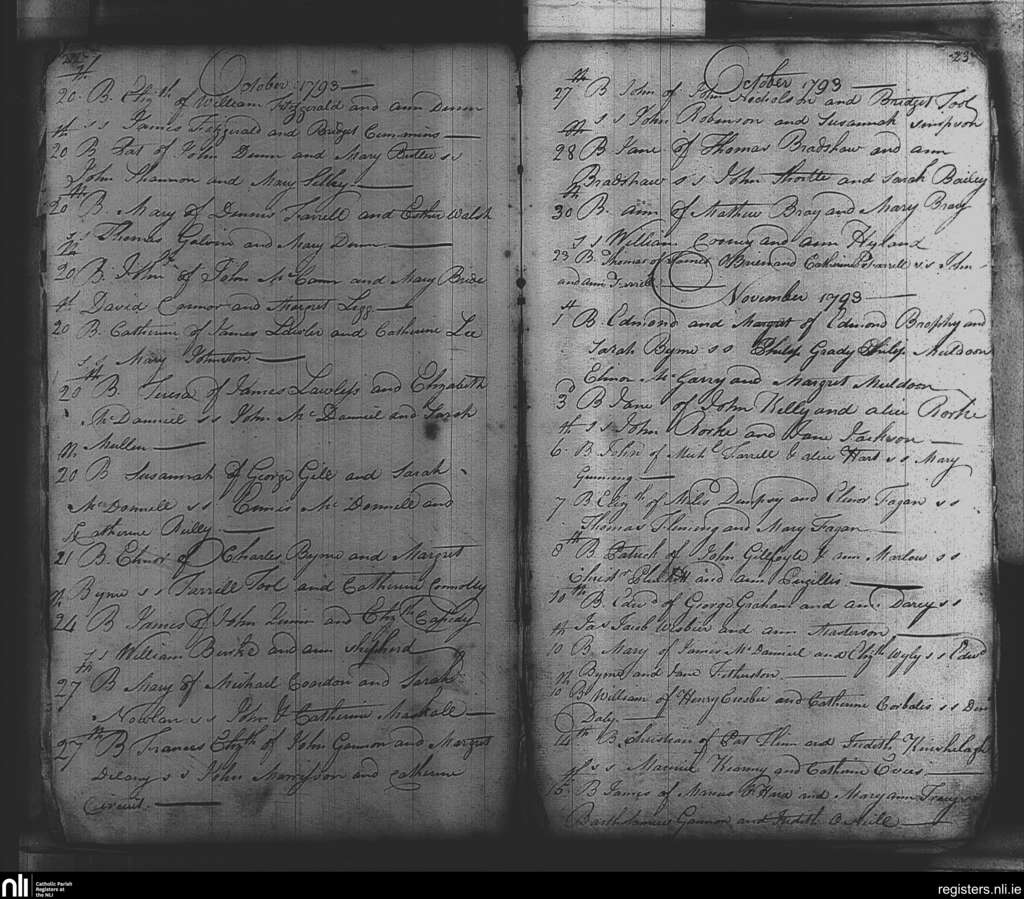 October 1793
20th B. Elizth of William Fitzgerald and ann Dunn
s s James Fitzgerald and Bridget Cummins
20th B Pat of John Dunn and Mary Butler s s
John Shannon and Mary Silley
20th B. Mary of Dennis Farrell and Esther Walsh
s s Thomas Galvin and Mary Dunn
20th B. John of John Mc Cann and Mary Bride
David Connor and Margret Legg
20th B. Catherine of James Lawler and Catherine Lee
s s Mary Johnston
20th B. Teresa of James Lawless and Elizabeth
Mc Danniel s s John Mc Danniel and Sarah
Mullen
20th B Susannah of George Gill and Sarah
Mc Donnell s s James Mc Donnell and
Catherine Reilly
21 B. Elinor of Charles Byrne and Margret
Byrne s s Farrell Tool and Catherine Connolly
24th B James of John Quinn and Elizth Casidy
s s William Burke and ann Shepherd
27th B Mary of Michael Coardon and Sarah
Nowlan s s John & Catherine Markall
27th B Frances Elizth of John Gannon and Margret
Delany s s John Morrisson and Catherine
23
October 1793
27th B John of John Nicholson and Bridget Tool
s s John Robinson and Susannah Simpson
28th B Jane of Thomas Bradshaw and ann
Bradshaw s s John Shortte and Sarah Bailey
30th B. ann of Mathew Bray and Mary Bray
s s William Cooney and ann Hyland
23 B. Thomas of James O'Brien and Catherine Farrell s s John
and ann Farrell
November 1793
1st B. Edmond and Margret of Edmond Brophy and
Sarah Byrne s s Philip Grady Philip Muldoon
Elinor Mc Garry and Margret Muldoon
3d B Jane of John Kelly and alice Rorke
s s John Rorke and Jane Jackson
6th B John of Michl Farrell & alice Hart s s Mary
Gunning
7 B Elizth of Miles Dempsy and Elinor Fagan s s
Thomas Fleming and Mary Fagan
8th B Patrick of John Gilfoyle & ann Marlow s s
Christr Plunkett and ann
10th B. Edwd of George Graham and ann Darcy s s
Jas Jacob Webber and ann Masterson
10th B. Mary of James Mc Danniel and Elizth Wyly s s Edwd
Byrne and Jane
10th B William of Henry Crosbie and Catherine Corbalis s s
Daly
14th B. Christian of Pat Flinn and Judith Kinshelagh
s s Maurice Kearney and Catherine
15th B James of Marcus O Hara and Mary ann s s
Bartholomew Gannon and Judith O Neill
nli
Catholic Parish
Registers at
the NLI
registers.nli.ie